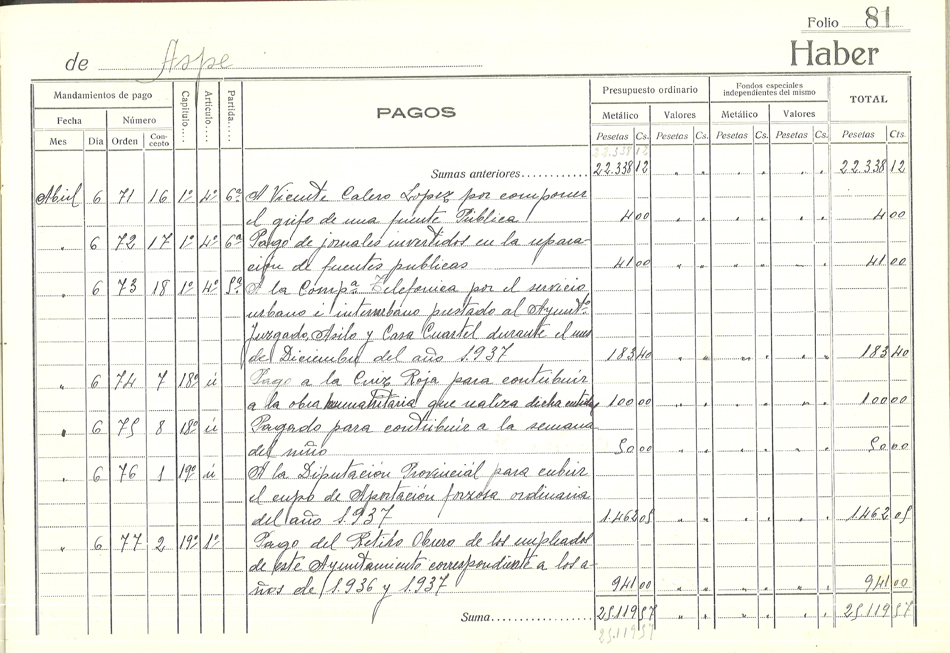 Folio 81
de Aspe Haber
Mandamientos de pago Capítulo Artículo Partida PAGOS Presupuesto ordinario Fondos especiales independientes del mismo TOTAL
Fecha Número Metálico Valores Metálico Valores
Mes Día Orden Concepto Pesetas Cs. Pesetas Cs. Pesetas Cs. Pesetas Cs. Pesetas Cts.
22.338 12
Sumas anteriores 22.338 12 " " " " " " 22.338 12
Abril 6 71 16 1º 4º 6ª A Vicente Calero López por componer
el grifo de una fuente Pública 4 00 " " " " " " 4 00
" 6 72 17 1º 4º 6ª Pago de jornales invertidos en la repara-
ción de fuentes publicas 41 00 " " " " " " 41 00
" 6 73 18 1º 4º 5ª A la Compª Telefonica por el servicio
urbano i interurbano prestado al Ayuntº
Juzgado, Asilo y Casa Cuartel durante el mes
de Diciembre del año 1.937 183 40 " " " " " " 183 40
" 6 74 7 18º ú Pago a la Cruz Roja para contribuir
a la obra humanitaria que realiza dicha entidad 100 00 " " " " " " 100 00
" 6 75 8 18º ú Pagado para contribuir a la semana
del niño 50 00 " " " " " " 50 00
" 6 76 1 19º ú A la Diputación Provincial para cubrir
el cupo de Aportación forzosa ordinaria
del año 1.937 1.462 05 " " " " " " 1.462 05
" 6 77 2 19º 1º Pago del Retiro Obrero de los empleados
de este Ayuntamiento correspondiente a los a-
ños de 1.936 y 1.937 941 00 " " " " " " 941 00
Suma 25.119 57 " " " " " " 25.119 57
25.119 57